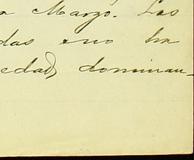 a Marzo. Las
das eno ha
edad, dominan-